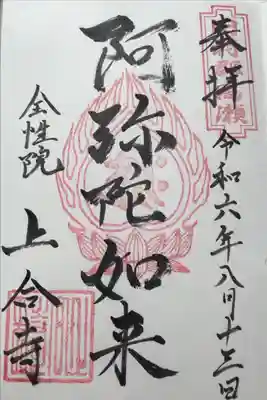 奉拝
令和六年八月十三日
阿弥陀如来
全性院
上合寺